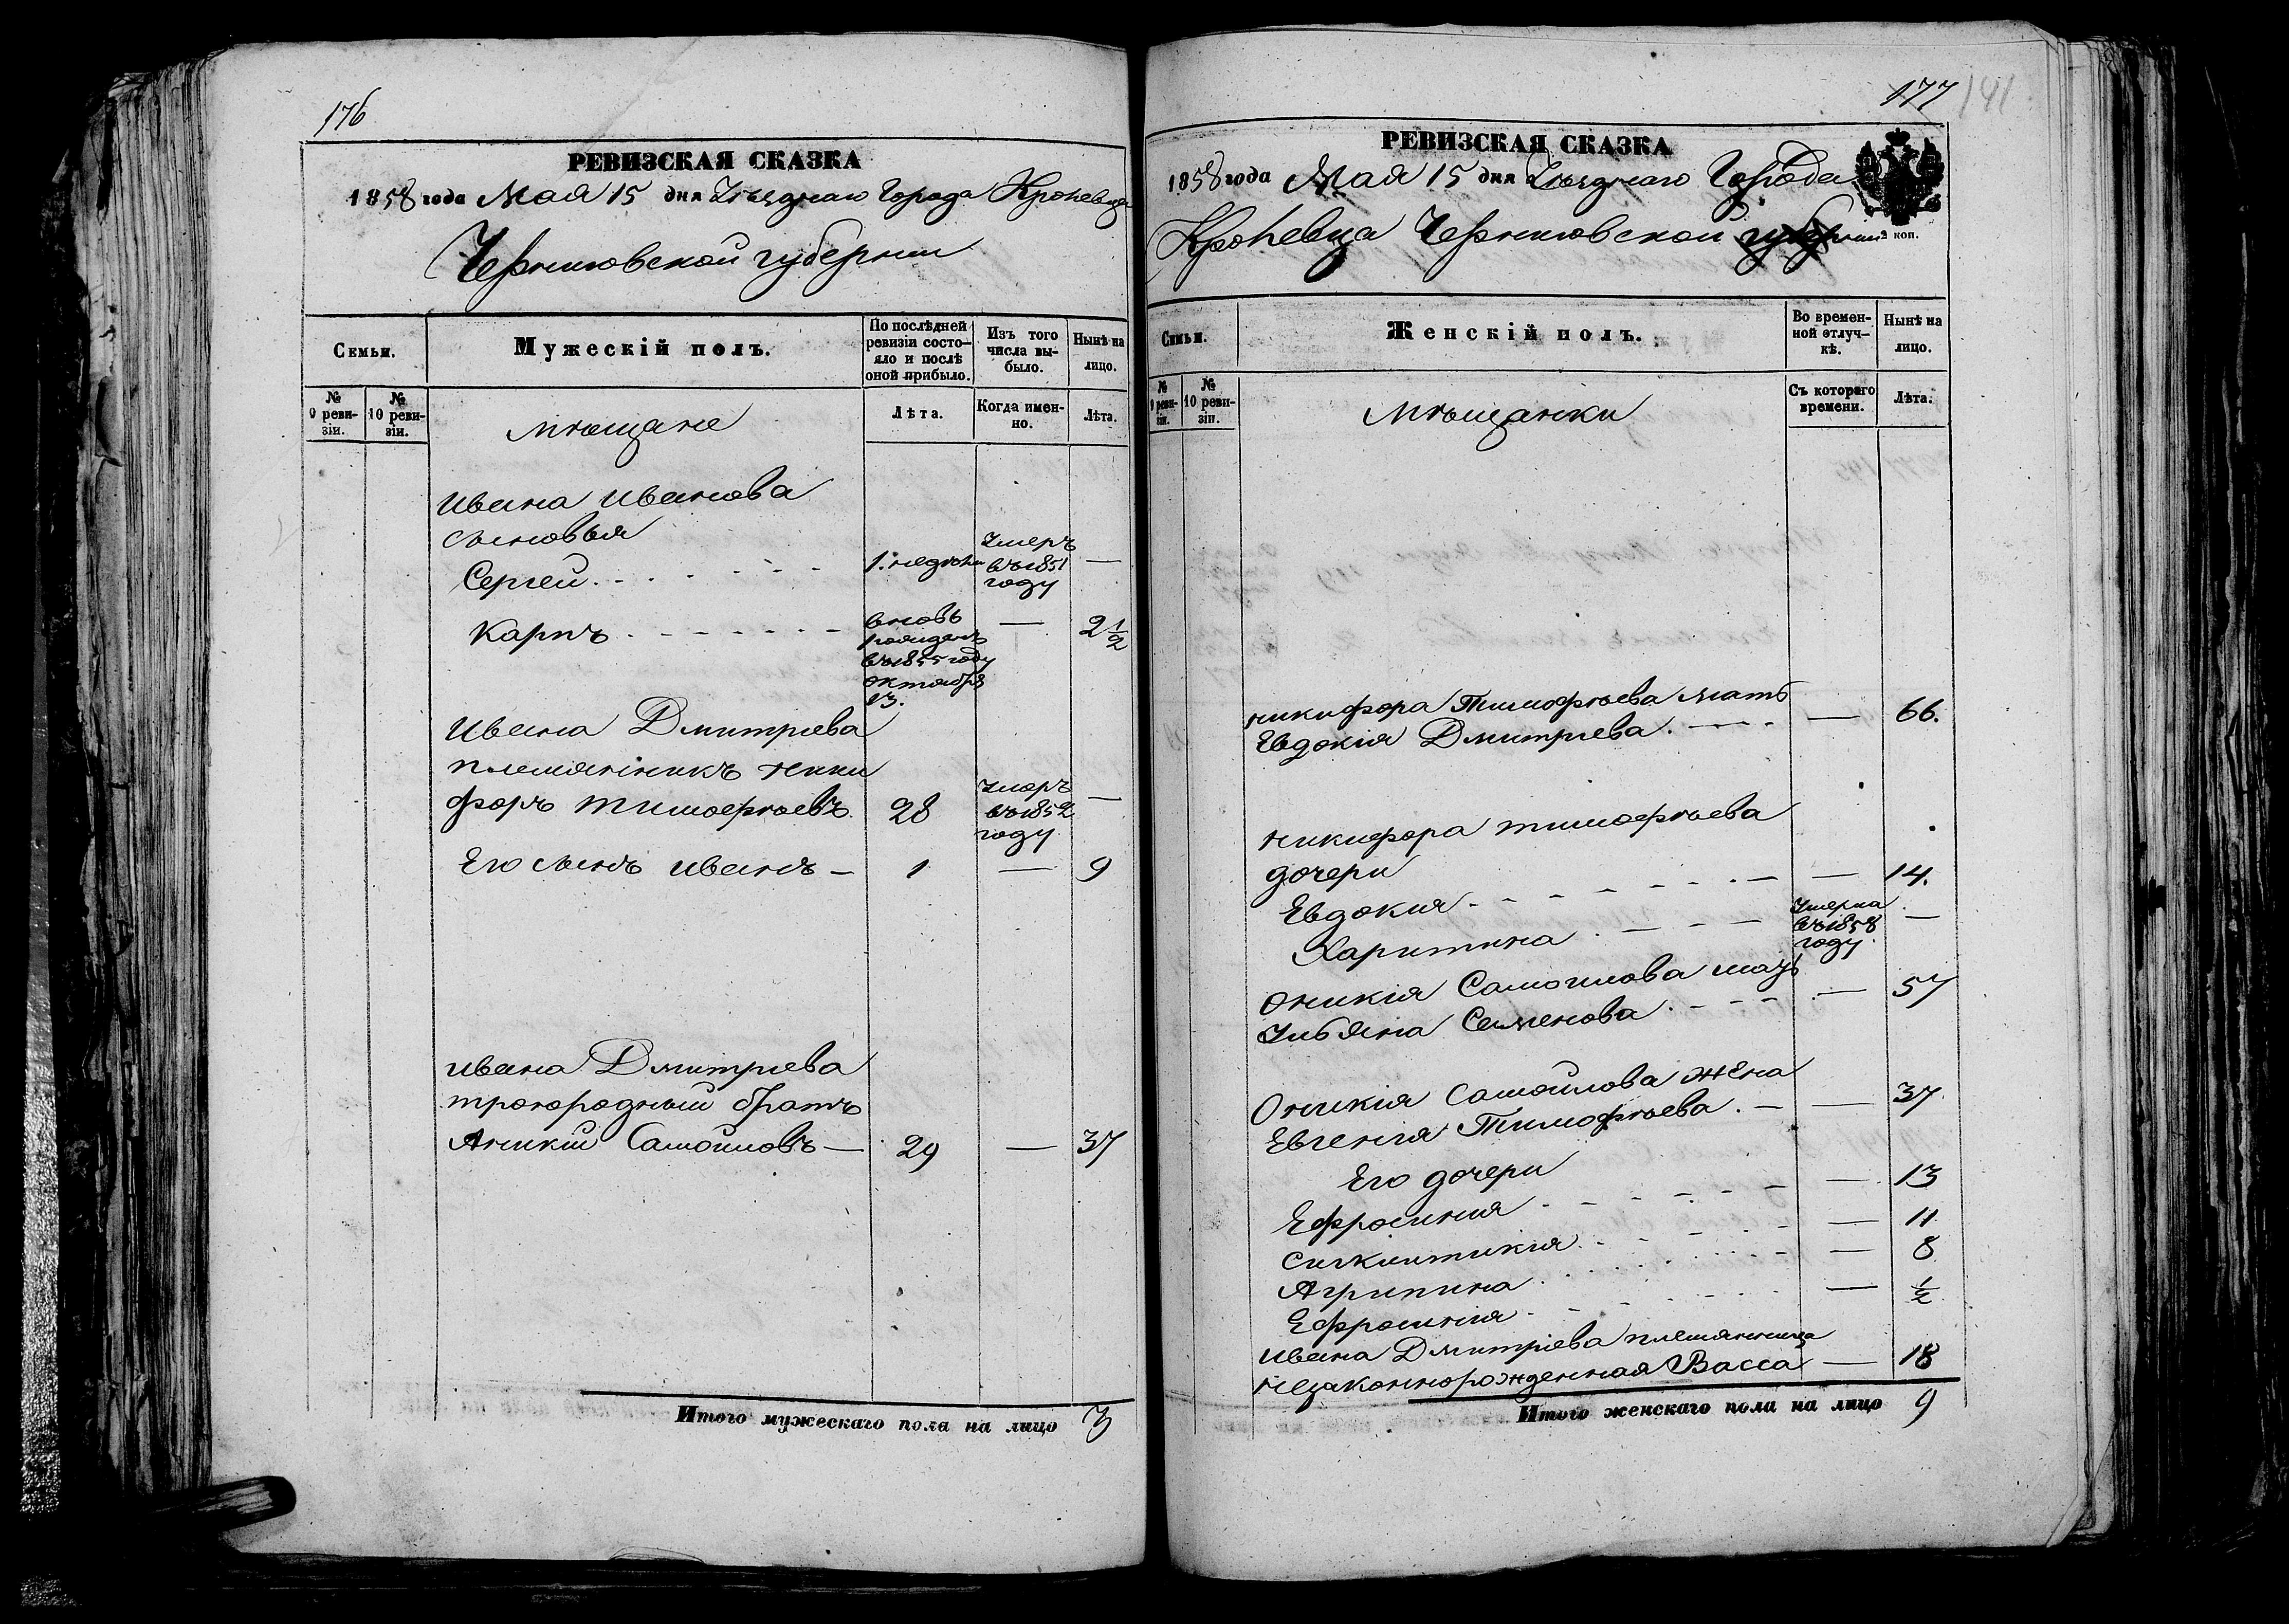 176
РЕВИЗСКАЯ СКАЗКА
1858 года Мая 15 дня Уѣзднаго Города Кролевца
Черниговской губернии
Семьи.
Мужескій полъ.
По послѣдней ревизіи состояло и послѣ оной прибыло.
Изъ того числа выбыло.
Нынѣ на лицо.
№ 9 ревизіи.
№ 10 ревизіи.
мѣщане
Лѣта.
Когда именно.
Лѣта.
Ивана Иванова
сыновья
Сергей 1. недѣли Умеръ въ 1851 году —
Карпъ вновь рожденъ въ 1855 году октября 13. — 2 1/2
Ивана Дмитриева
племянникъ Ники
форъ Тимофѣевъ 28 Умеръ въ 1852 году —
Его сынъ Иванъ — 1 — 9
Ивана Дмитриева
троюродный братъ
Аникий Самойловъ — 29 — 37
Итого мужескаго пола на лицо 3
177 141
РЕВИЗСКАЯ СКАЗКА
1858 года Мая 15 дня Уѣзднаго Города
Кролевца Черниговской губернии
коп.
Семьи.
Женскій полъ.
Во временной отлучкѣ.
Нынѣ на лицо.
№ 9 ревизіи.
№ 10 ревизіи.
мѣщанки
Съ котораго времени.
Лѣта.
Никифора Тимофѣева мать
Евдокия Дмитриева. — 66.
Никифора Тимофѣева
дочери
Евдокия — 14.
Харитина Умерла въ 1858 году —
Оникия Самоилова мать
Ульяна Семенова — 57
Оникия Самойлова жена
Евгения Тимофѣева. — 37
Его дочери
Ефросиния — 13
Синклитикия — 11
Агрипина — 8
Ефросиния — 1/2
Ивана Дмитриева племянница
незаконнорожденная Васса — 18
Итого женскаго пола на лицо 9